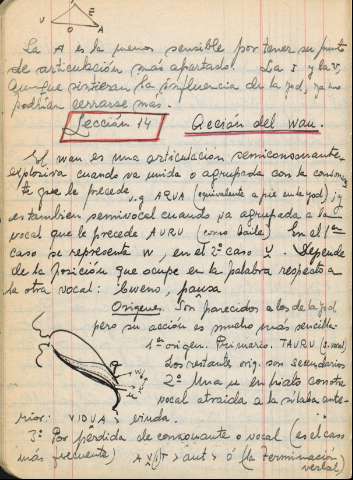 E
U O A
La A es la menos sensible por tener su punto
de articulación más apartado. La I y la U,
aunque sintieran la influencia de la yod, ya no
podrían cerrarse más.
Lección 14 Acción del wau.
El wau es una articulación semiconsonante
explosiva cuando va unida o agrupada con la consonan
te que le precede v.g. AQUA (equivalente a pie en la yod) y
es tambien semivocal cuando va agrupada a la
vocal que le precede AURU (como baile) En el 1er
caso se representa w, en el 2º caso u̯. Depende
de la posición que ocupe en la palabra respecto a
la otra vocal: bweno, pau̯sa
Orígenes. Son parecidos a los de la yod
pero su acción es mucho más sencilla
1er origen. Primario. TAURU
Los restantes orig. son secundarios
2º Una u en hiato con otra
vocal atraida a la sílaba ante-
rior: VIDUA > viuda.
3º Por pérdida de consonante o vocal (es el caso
más frecuente) > aut > ó (la terminación
verbal)